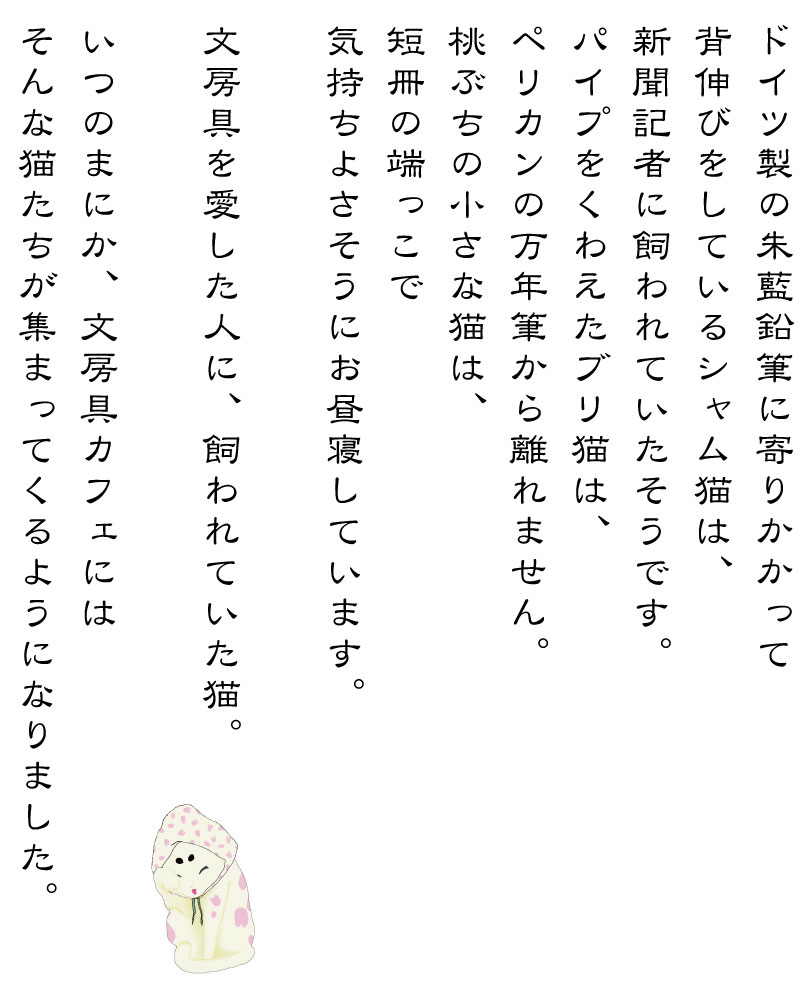 ドイツ製の朱藍鉛筆に寄りかかって
背伸びをしているシャム猫は、
新聞記者に飼われていたそうです。
パイプをくわえたブリ猫は、
ペリカンの万年筆から離れません。
桃ぶちの小さな猫は、
短冊の端っこで
気持ちよさそうにお昼寝しています。
文房具を愛した人に、飼われていた猫。
いつのまにか、文房具カフェには
そんな猫たちが集まってくるようになりました。